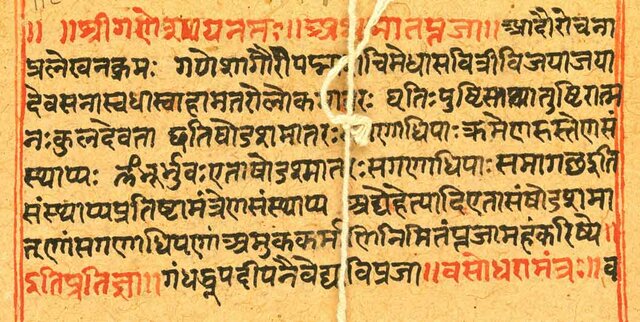 ॥ ॥ श्रीगणेशायनमः ॥ अथ मातृपूजा ॥ आदौरोचना
प्रलेखनक्रमः गणेशागौरीपद्मा चिमेधासवित्रीविजयाजया
देवसेनास्वधास्वाहामातरोलोकमातरः धृतिःपुष्टिस्तथातुष्टिरात्म
नःकुलदेवता इतिषोडशमातरः सगणाधिपाः क्रमेणहस्तेनसं
स्थाप्यः ॐभूर्भुवः एताषोडशमातरः सगणाधिपाः समागछइति
संस्थाप्यप्रतिष्टामंत्रेणसंस्थाप्य अद्येहेत्यादिएतासंषोडशमा
तृणांसगणाधिपाणां अमुककर्मणिनिमितंपूजामहंकरिष्ये॥
इतिप्रतिज्ञा॥ गंधधूपदीपनैवेद्य विपूजा॥ वसोधरामंत्रः॥ व